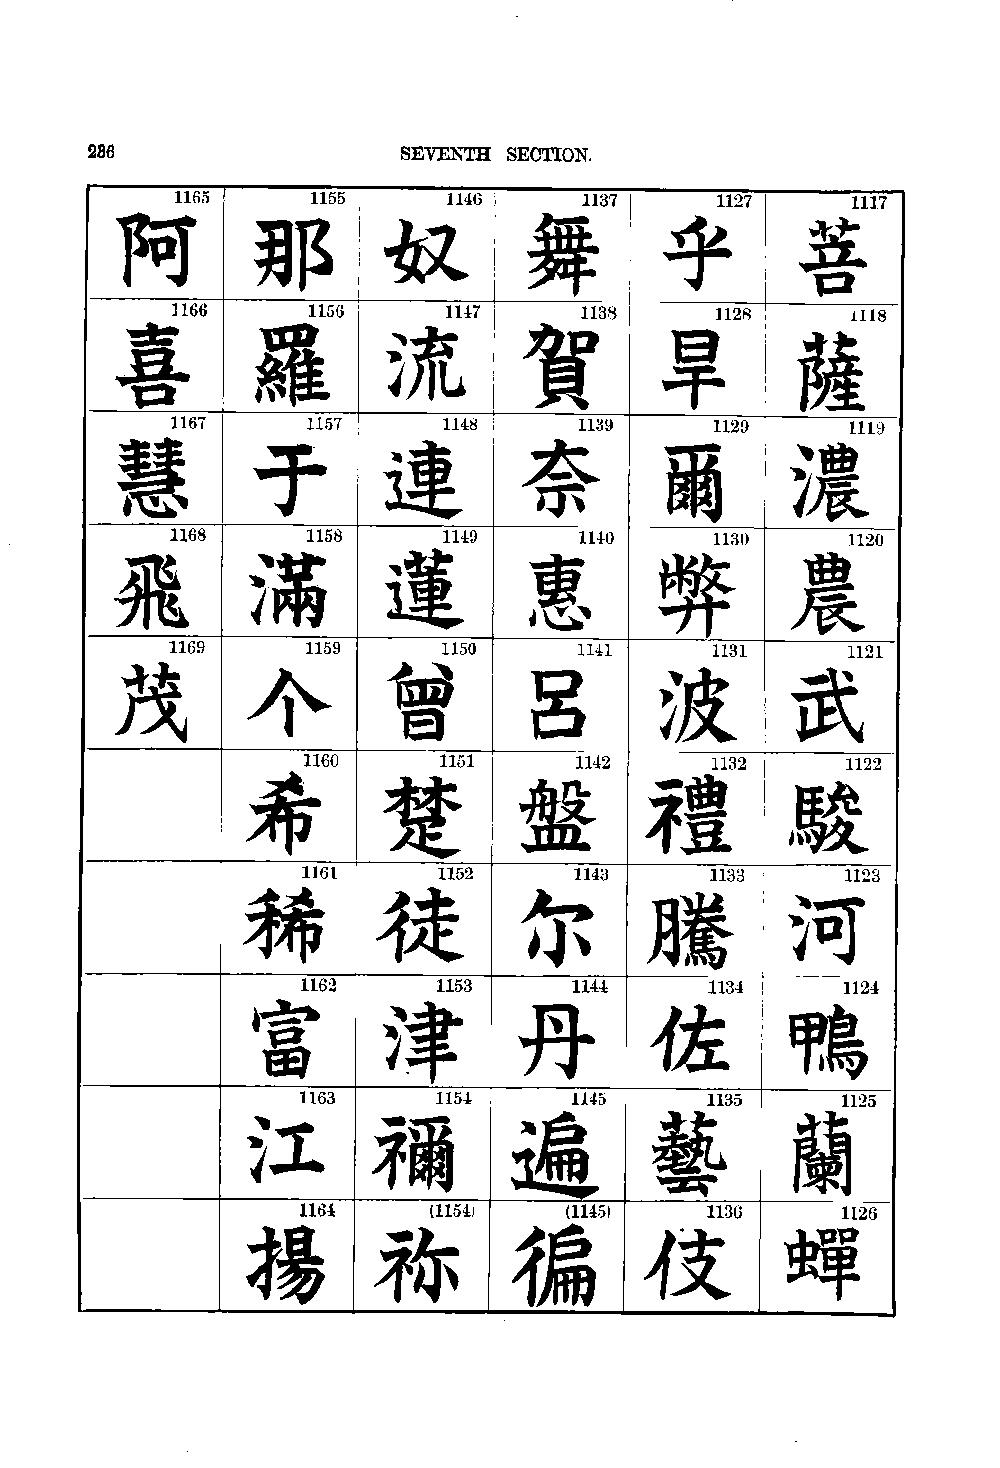 286
SEVENTH SECTION.
1117 菩
1118 薩
1119 濃
1120 農
1121 武
1122 駿
1123 河
1124 鴨
1125 蘭
1126 蟬
1127 乎
1128 旱
1129 爾
1130 弊
1131 波
1132 禮
1133 騰
1134 佐
1135 藝
1136 伎
1137 舞
1138 賀
1139 奈
1140 惠
1141 呂
1142 盤
1143 尔
1144 丹
1145 遍
(1145) 徧
1146 奴
1147 流
1148 連
1149 蓮
1150 曾
1151 楚
1152 徒
1153 津
1154 禰
(1154) 祢
1155 那
1156 羅
1157 于
1158 滿
1159 个
1160 希
1161 稀
1162 富
1163 江
1164 揚
1165 阿
1166 喜
1167 慧
1168 飛
1169 茂